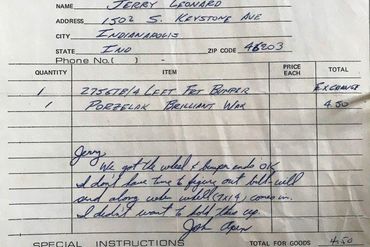 NAME JERRY LEONARD
ADDRESS 1502 S. KEYSTONE AVE
CITY INDIANAPOLIS
STATE IND ZIP CODE 46203
Phone No. ( )
QUANTITY ITEM PRICE EACH TOTAL
1 LEFT BUMPER EXCHANGE
1 PORZELAK BRILLIANT WAX 4.50
Jerry
We got the wheel & bumper ends OK
I don't have time to figure out bill - will
send along when wheel (7x14) comes in.
I didn't want to hold this up.
John
SPECIAL INSTRUCTIONS TOTAL FOR GOODS 4.50